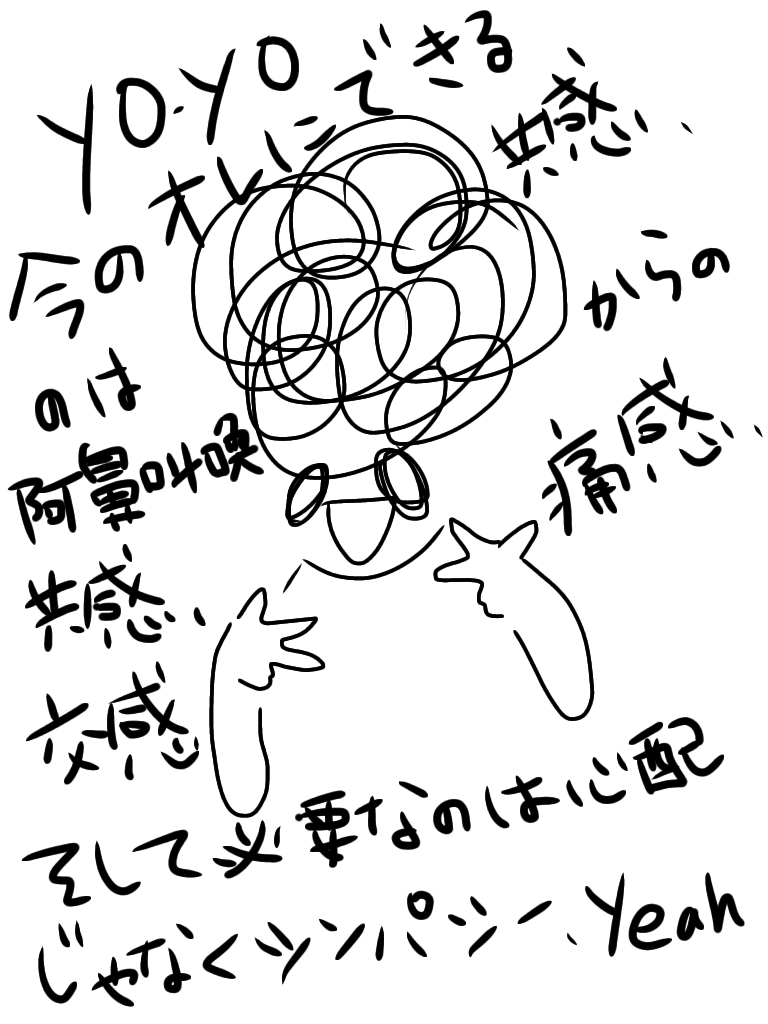 YO.YO
今の
オレにできる
のは
共感、
からの
痛感、
阿鼻叫喚
共感、
交感
そして必要なのは心配
じゃなくシンパシー、Yeah